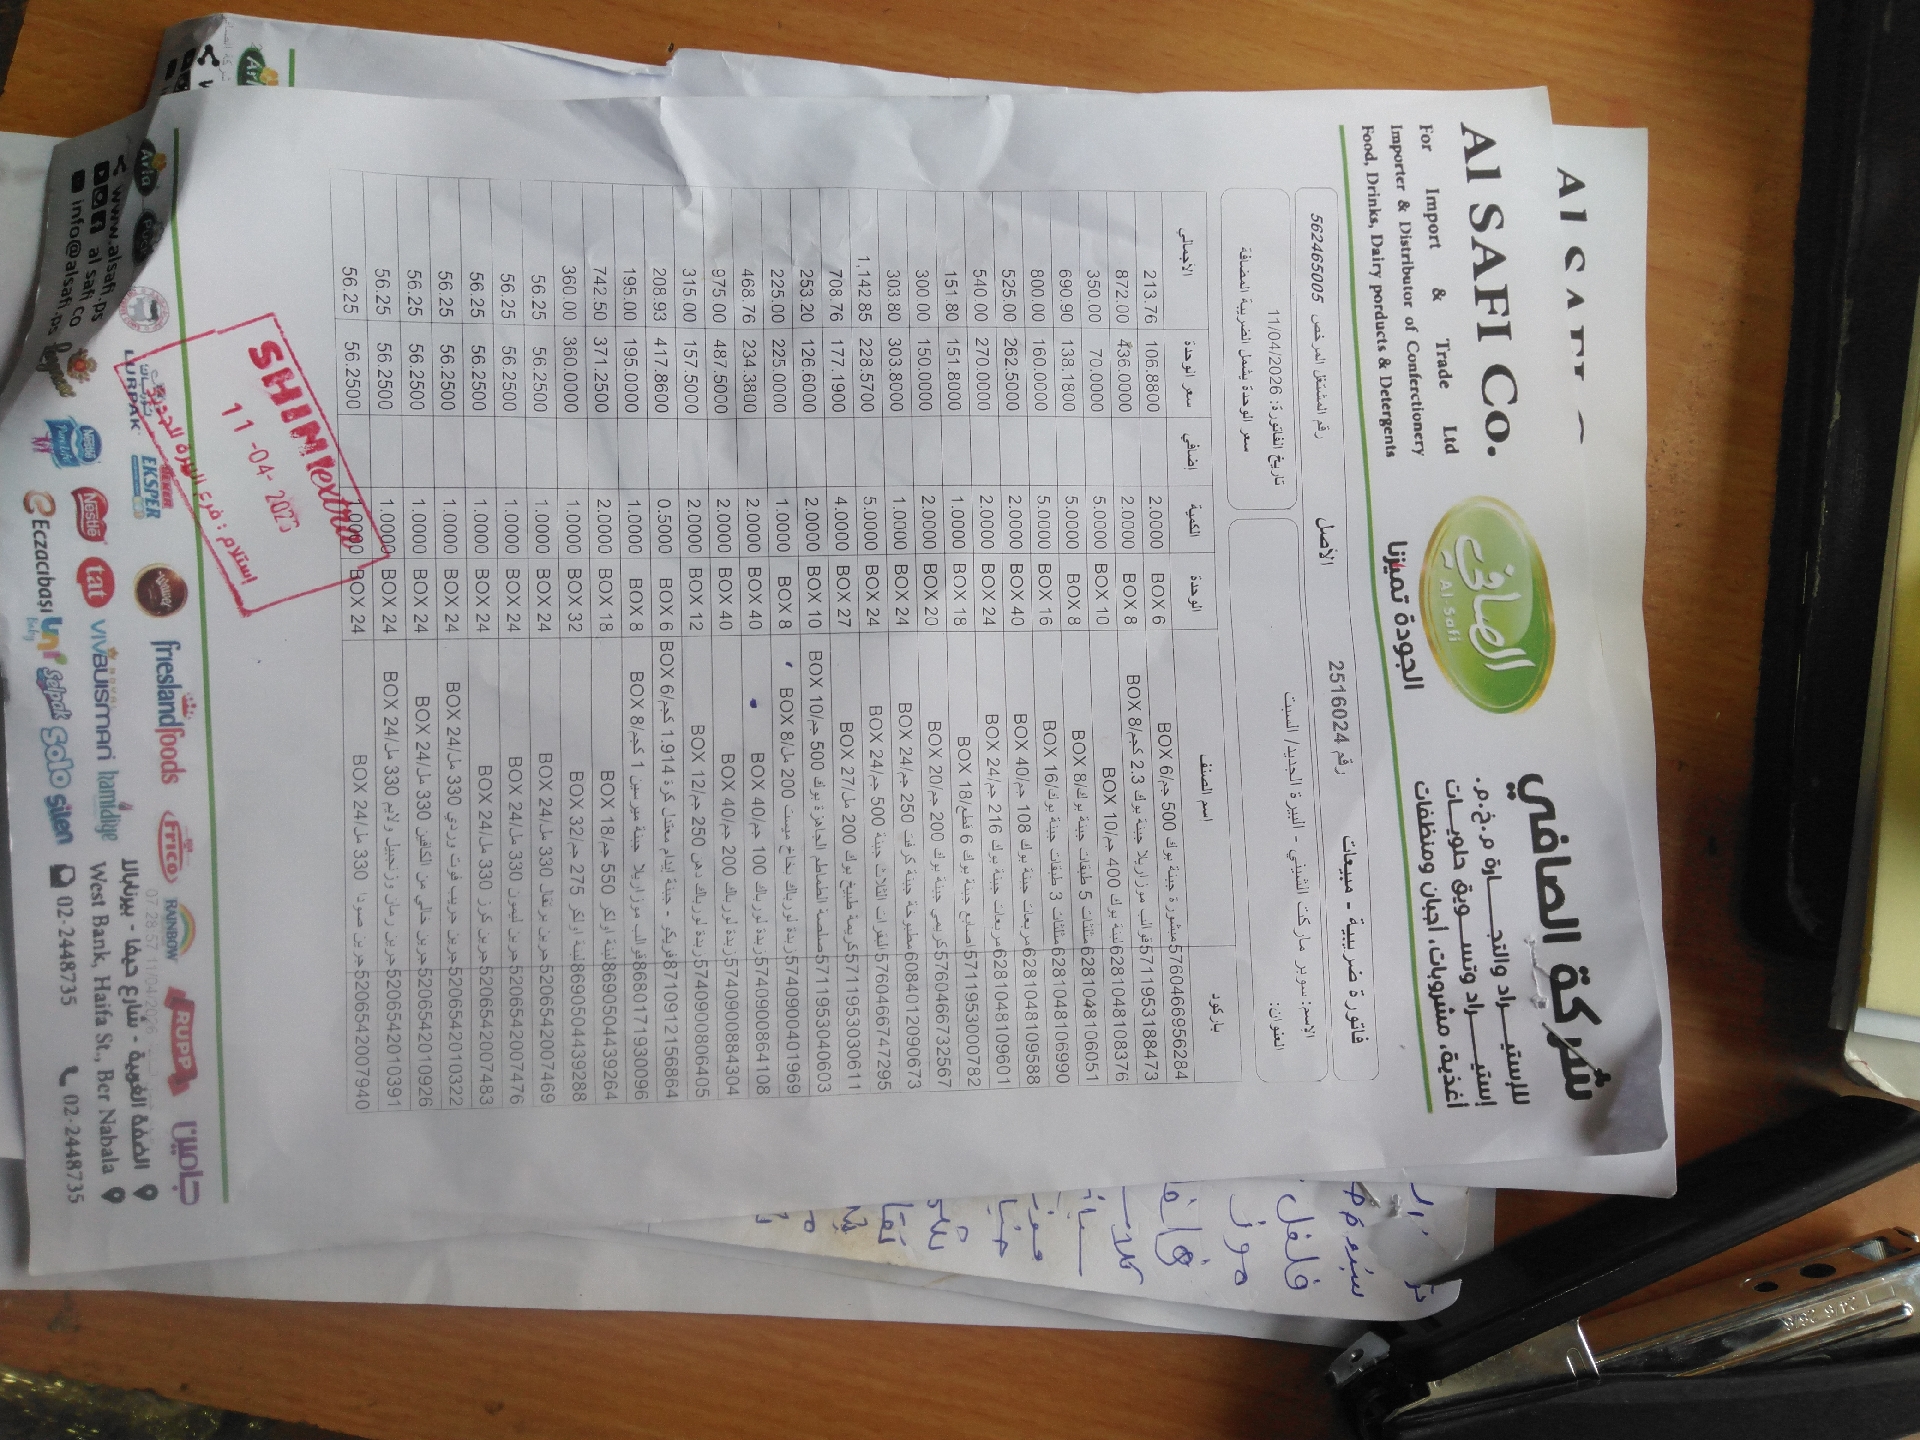 Al SAFI Co.
For Import & Trade Ltd
Importer & Distributor of Confectionery
Food, Drinks, Dairy porducts & Detergents
الصافي
Al Safi
الجودة تميزنا
شركة الصافي
للإستيـراد والتجـارة م.خ.م.
إستيـراد وتسـويق حلويـات
أغذية، مشروبات، أجبان ومنظفات
فاتورة ضريبية - مبيعات رقم 2516024 الأصل رقم المشتغل المرخص 562465005
الإسم: سوبر ماركت الشيني - البيرة الجديد/ السبت
العنوان:
تاريخ الفاتورة: 11/04/2026
سعر الوحدة يشمل الضريبة المضافة
باركود اسم الصنف الوحدة الكمية اضافي سعر الوحدة الاجمالي
5760466956284 مبشورة جبنة بوك 500 جم/BOX 6 BOX 6 2.0000 106.8800 213.76
5711953188473 قوالب موزاريلا جبنة بوك 2.3 كجم/BOX 8 BOX 8 2.0000 436.0000 872.00
6281048108376 لبنة بوك 400 جم/BOX 10 BOX 10 5.0000 70.0000 350.00
6281048106051 مثلثات 5 طبقات جبنة بوك/BOX 8 BOX 8 5.0000 138.1800 690.90
6281048106990 مثلثات 3 طبقات جبنة بوك/BOX 16 BOX 16 5.0000 160.0000 800.00
6281048109588 مربعات جبنة بوك 108 جم/BOX 40 BOX 40 2.0000 262.5000 525.00
6281048109601 مربعات جبنة بوك 216 جم/BOX 24 BOX 24 2.0000 270.0000 540.00
5711953000782 اصابع جبنة بوك 6 قطع/BOX 18 BOX 18 1.0000 151.8000 151.80
5760466732567 كريمي جبنة بوك 200 جم/BOX 20 BOX 20 2.0000 150.0000 300.00
6084012090673 مطبوخة جبنة كرفت 250 جم/BOX 24 BOX 24 1.0000 303.8000 303.80
5760466747295 البقرات الثلاث جبنة 500 جم/BOX 24 BOX 24 5.0000 228.5700 1,142.85
5711953030611 كريمة طبيخ بوك 200 مل/BOX 27 BOX 27 4.0000 177.1900 708.76
5711953040603 صلصة الطماطم الجاهزة بوك 500 جم/BOX 10 BOX 10 2.0000 126.6000 253.20
5740900401969 زبدة لورباك بخاخ ميست 200 مل/BOX 8 BOX 8 1.0000 225.0000 225.00
5740900864108 زبدة لورباك 100 جم/BOX 40 BOX 40 2.0000 234.3800 468.76
5740900884304 زبدة لورباك 200 جم/BOX 40 BOX 40 2.0000 487.5000 975.00
5740900806405 زبدة لورباك دهن 250 جم/BOX 12 BOX 12 2.0000 157.5000 315.00
8710912156864 فريكو - جبنة ايدام معتدل كرة 1.914 كجم/BOX 6 BOX 6 0.5000 417.8600 208.93
8680171930096 قوالب موزاريلا جبنة مورسين 1 كجم/BOX 8 BOX 8 1.0000 195.0000 195.00
8690504439264 لبنة اولكر 550 جم/BOX 18 BOX 18 2.0000 371.2500 742.50
8690504439288 لبنة اولكر 275 جم/BOX 32 BOX 32 1.0000 360.0000 360.00
5206542007469 جرين برتقال 330 مل/BOX 24 BOX 24 1.0000 56.2500 56.25
5206542007476 جرين ليمون 330 مل/BOX 24 BOX 24 1.0000 56.2500 56.25
5206542007483 جرين كرز 330 مل/BOX 24 BOX 24 1.0000 56.2500 56.25
5206542010322 جرين جريب فوت وردي 330 مل/BOX 24 BOX 24 1.0000 56.2500 56.25
5206542010926 جرين خالي من الكافين 330 مل/BOX 24 BOX 24 1.0000 56.2500 56.25
5206542010391 جرين رمان وزنجبيل ولايم 330 مل/BOX 24 BOX 24 1.0000 56.2500 56.25
5206542007940 جرين صودا 330 مل/BOX 24 BOX 24 1.0000 56.2500 56.25
SHINI extra
11-04-2026
استلام: فرع البيرة الجديد
07:28:57 11/04/2026
Arla
Puck
LURPAK
لورباك
EKSPER
Ülker
frieslandfoods
Frico
RAINBOW
RUPP
جامبين
Nestle
Pure Life
Nestle
tat
VIVBUISMAN
hamidiye
Eczacıbaşı
uni Baby
Selpak
Solo
silen
www.alsafi.ps
al safi co
info@alsafi.ps
الضفة الغربية - شارع حيفا - بيرنبالا
West Bank, Haifa St., Ber Nabala
02-2448735
02-2448735
فلفل
موز